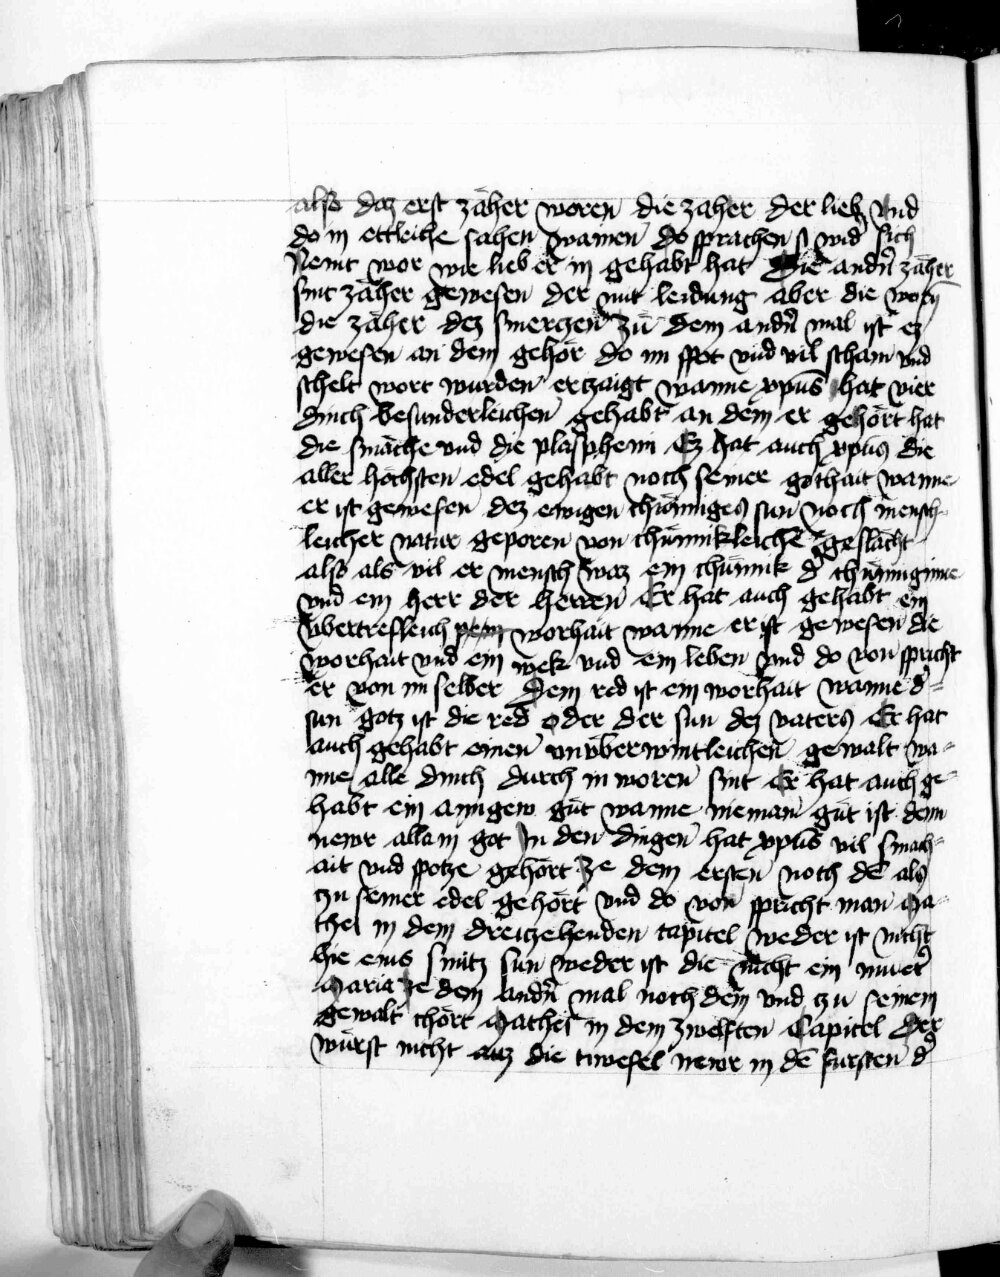 also daz erst zäher woren die zaher der lieb Vnd
do in ettleiche sahen wainen do sprachen si wid' sich
Nemt wor wie lieb er in gehabt hat Die andn̄ zäher
sint zäher gewesen der mit leidung aber die
die zäher dez smerczen zü dem andn̄ mal ist ez
gewesen an dem gehör do im spot vnd vil scham vnd
schelt wort wurden erczaigt wanne xpūs hat vier
dinch besunderleichen gehabt an dem er gehört hat
die smäche vnd die plaspheim Ez hat auch xpūs die
aller höchsten edel gehabt noch seiner gothait wanne
er ist gewesen dez ewigen chüniges sun noch mensch-
leicher natur geporen von chünikleichē geslächt
also als vil er mensch waz ein chünik d' chüniginne
vnd ein herr der herren Er hat auch gehabt ein
vbertrefleich worhait wanne er ist gewesen die
worhait vnd ein wek vnd ein leben vnd do von spricht
er von im selber Dein red ist ein worhait wanne d'
sun gotz ist die red oder der sun dez vaters Er hat
auch gehabt einen vnüberwintleichen gewalt wa-
nne alle dinch durch in woren sint Er hat auch ge-
habt ein güt wanne nieman güt ist denn
newr allain got In den dingen hat xpūs vil smach-
ait vnd spotze gehört Ze dem ersten noch dē als
zu seiner edel gehört vnd do von spricht man Ma-
thei in dem dreiczehenden capitel weder ist nicht
hie eins smitz sun weder ist die nicht ein muter
Maria Ze dem andn̄ mal noch dem vnd zu seinem
gewalt chört Mathei in dem zwelften Capitel Der
würst nicht auz die tiwefel newr in dē fursten d'